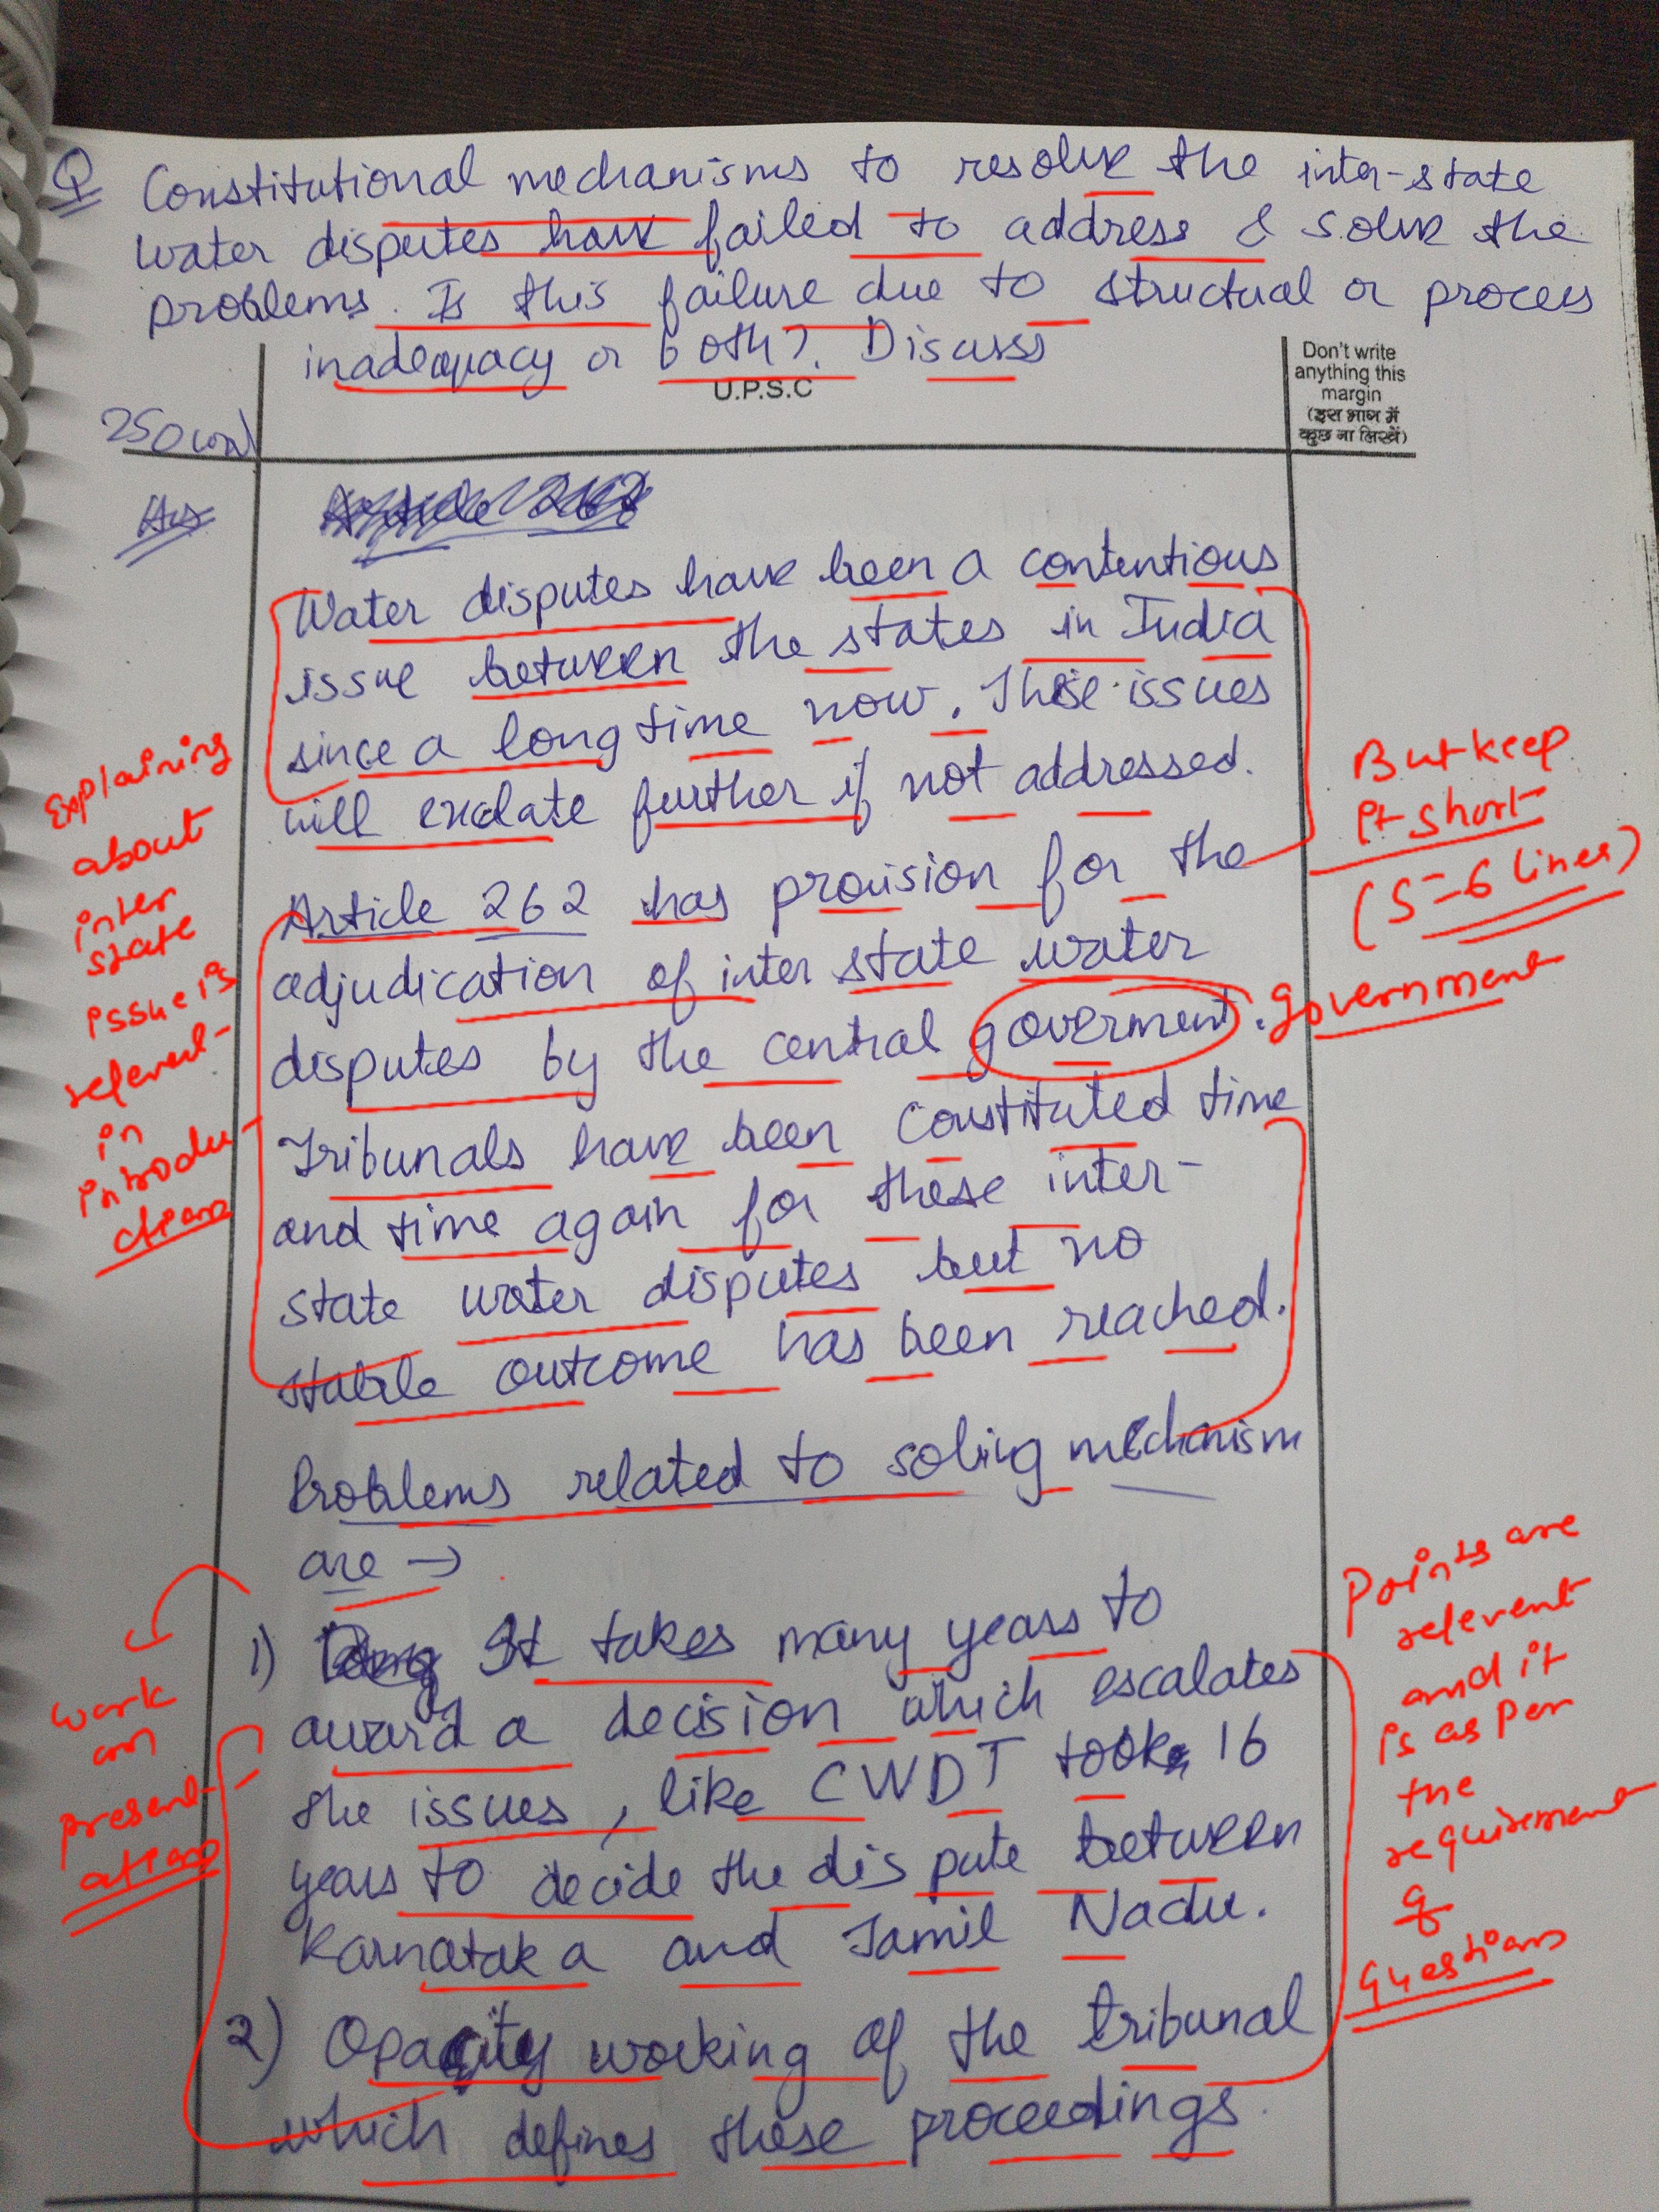 Q Constitutional mechanisms to resolve the inter-state
water disputes have failed to address & solve the
problems. Is this failure due to structual or process
inadequacy or both?. Discuss
U.P.S.C
Don't write
anything this
margin
(इस भाग में
कुछ ना लिखें)
250 word
Ans
Article 262
Water disputes have been a contentious
issue between the states in India
since a long time now. These issues
will exclate further if not addressed.
Article 262 has provision for the
adjudication of inter state water
disputes by the central goverment.
Tribunals have been constituted time
and time again for these inter-
state water disputes but no
stable outcome has been reached.
Problems related to solving mechanism
are →
1) It takes many years to
award a decision which escalates
the issues, like CWDT took 16
years to decide the dispute between
Karnataka and Tamil Nadu.
2) Opacity working of the tribunal
which defines these proceedings.
Explaining
about
inter
state
issue is
relevent
in
introdu-
ction
But keep
it short
(5-6 lines)
government
work
on
present-
ation
Points are
relevent
and it
is as per
the
requirement
of
questions